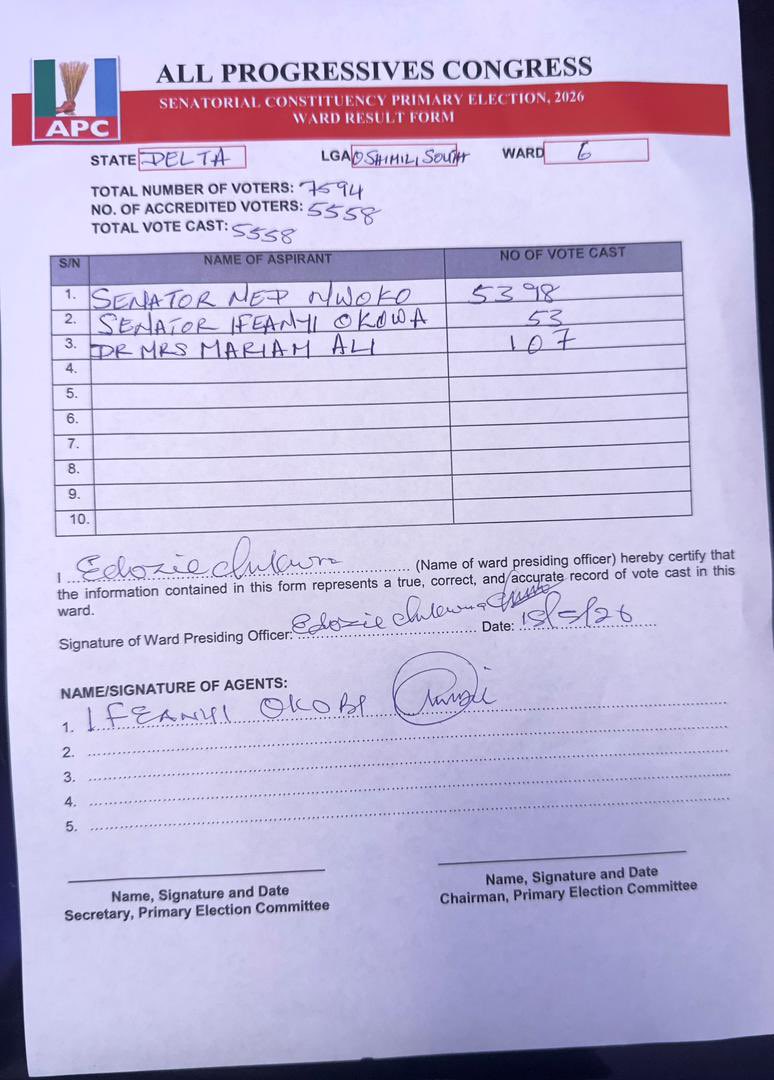 ALL PROGRESSIVES CONGRESS
SENATORIAL CONSTITUENCY PRIMARY ELECTION, 2026
WARD RESULT FORM
APC
STATE DELTA LGA OSHIMILI SOUTH WARD 6
TOTAL NUMBER OF VOTERS: 7594
NO. OF ACCREDITED VOTERS: 5558
TOTAL VOTE CAST: 5558
S/N NAME OF ASPIRANT NO OF VOTE CAST
1. SENATOR NED NWOKO 5398
2. SENATOR IFEANYI OKOWA 53
3. DR MRS MARIAM ALI 107
4.
5.
6.
7.
8.
9.
10.
I Edozie (Name of ward presiding officer) hereby certify that
the information contained in this form represents a true, correct, and accurate record of vote cast in this
ward.
Signature of Ward Presiding Officer: Edozie Date:
NAME/SIGNATURE OF AGENTS:
1. IFEANYI OKOBI
2.
3.
4.
5.
Name, Signature and Date
Secretary, Primary Election Committee
Name, Signature and Date
Chairman, Primary Election Committee